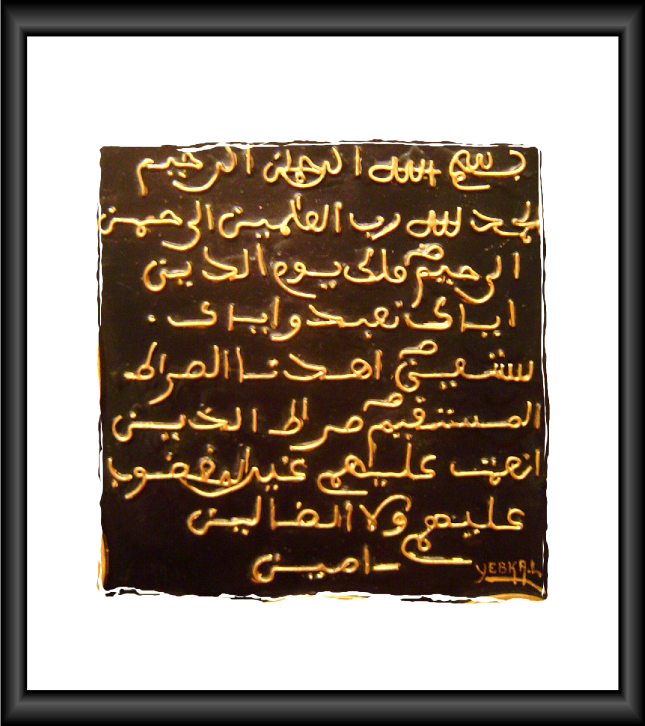 بسم الله الرحمن الرحيم
الحمد لله رب العلمين الرحمن
الرحيم ملك يوم الدين
اياك نعبد واياك .
ستعين اهدنا الصراط
المستقيم صراط الذين
انعمت عليهم غير المغضوب
عليهم ولا الضالين
امين
YEBKA.L